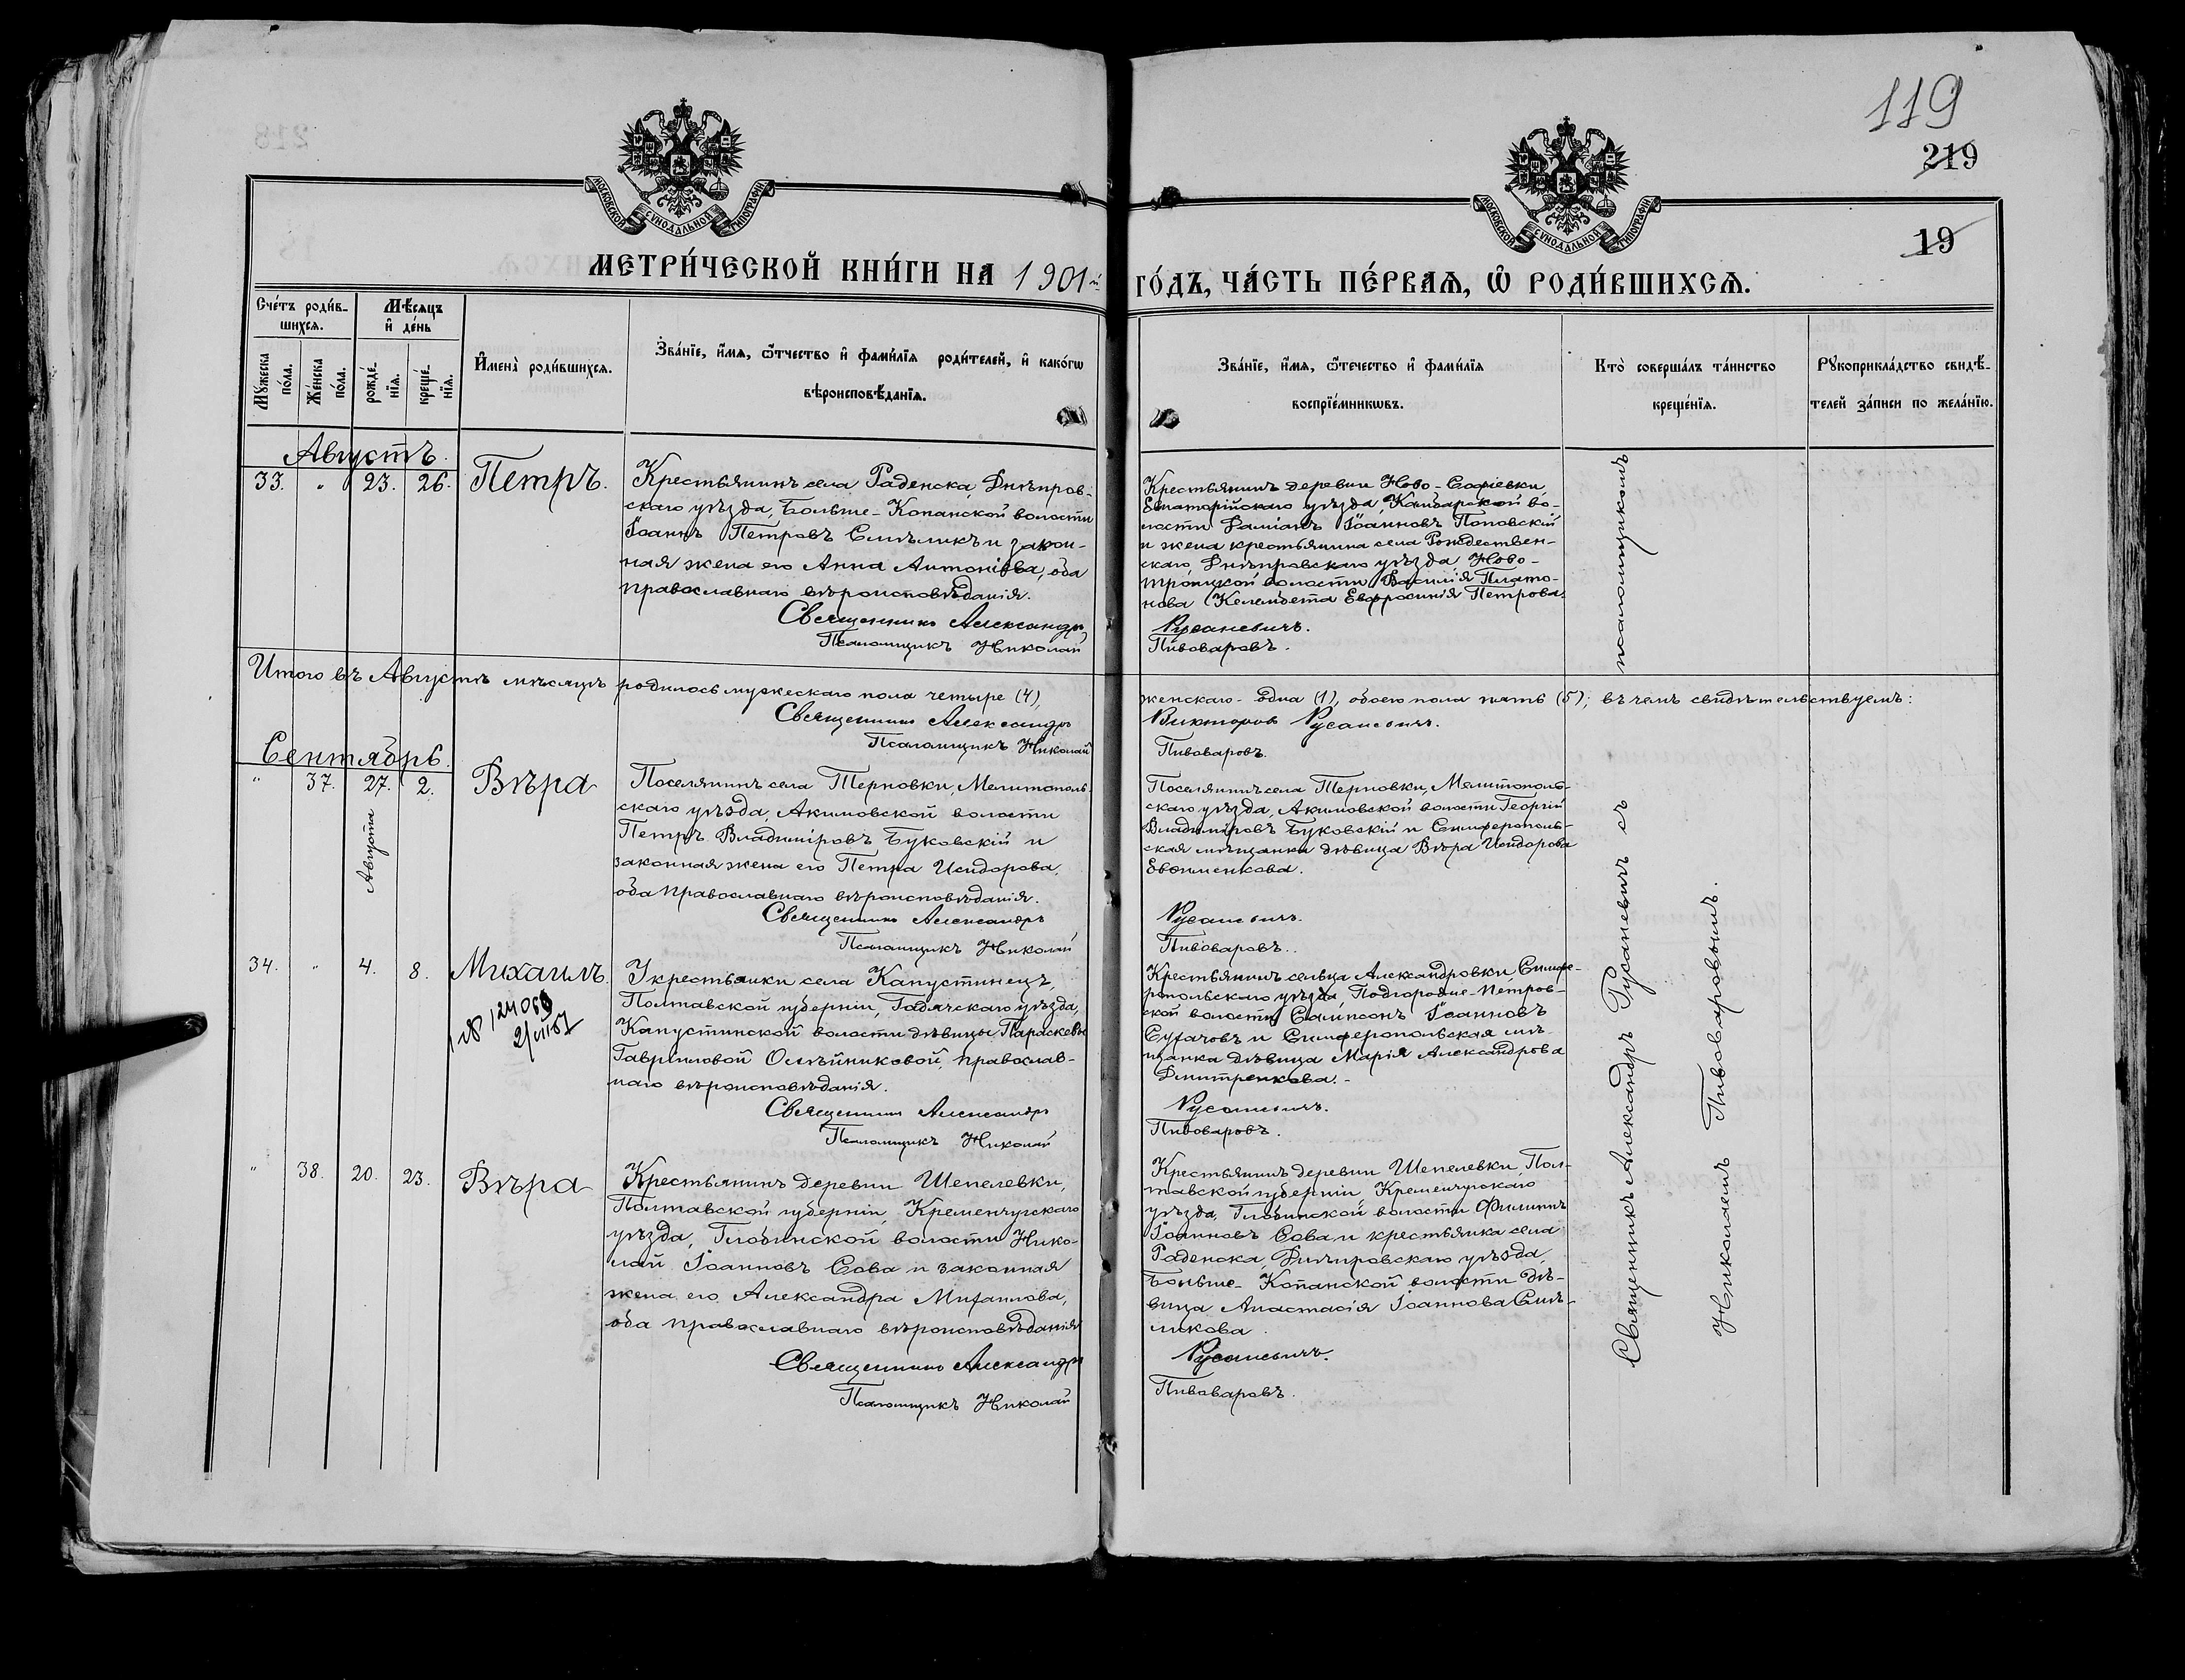 119
219
19
МОСКОВСКОЙ СѴНОДАЛЬНОЙ ТИПОГРАФІИ
МОСКОВСКОЙ СѴНОДАЛЬНОЙ ТИПОГРАФІИ
МЕТРИ́ЧЕСКОЙ КНИ́ГИ НА 1901й
ГО́ДЪ, ЧА́СТЬ ПЕ́РВАѦ, Ѡ҆ РОДИ́ВШИХСѦ.
Сче́тъ роди́в-
шихсѧ.
Мѣ́сѧцъ
и҆ де́нь
Мꙋ́жеска
по́ла.
Же́нска
по́ла.
рожде́-
нїѧ.
креще́-
нїѧ.
И҆мена̀ роди́вшихсѧ.
Зва́нїе, и҆́мѧ, ѻ҆́тчество и҆ фами́лїѧ роди́телей, и҆ како́гѡ
вѣроисповѣ́данїѧ.
Зва́нїе, и҆́мѧ, ѻ҆́течество и҆ фами́лїѧ
воспрїе́мникѡвъ.
Кто̀ соверша́лъ та́инство
креще́нїѧ.
Рꙋкоприкла́дство свидѣ́-
телей за́писи по жела́нїю.
Августъ.
33. " 23. 26. Петръ.
Крестьянинъ села Раденска, Днѣпров-
скаго уѣзда, Больше-Копанской волости
Іоаннъ Петровъ Смѣликъ и закон-
ная жена его Анна Антоніева, оба
православнаго вѣроисповѣданія.
Священникъ Александръ
Псаломщикъ Николай
Крестьянинъ деревни Ново-Софіевки,
Евпаторійскаго уѣзда, Камбарской во-
лости Даміанъ Іоанновъ Поповскій
и жена крестьянина села Рождествен-
скаго, Днѣпровскаго уѣзда, Ново-
троицкой волости Василія Плато-
нова Келембета Евфросинія Петрова.
Русаневичъ.
Пивоваровъ.
Итого въ Августѣ мѣсяцѣ родилось мужескаго пола четыре (4),
женскаго - одна (1), обоего пола пять (5); въ чемъ свидѣтельствуемъ:
Священникъ Александръ
Викторовъ Русаневичъ.
Псаломщикъ Николай
Пивоваровъ.
Сентябрь.
" 37. 27. 2. Вѣра
Августа
Поселянинъ села Терновки, Мелитополь-
скаго уѣзда, Акимовской волости
Петръ Владиміровъ Буковскій и
законная жена его Петра Исидорова,
оба православнаго вѣроисповѣданія.
Священникъ Александръ
Псаломщикъ Николай
Поселянинъ села Терновки, Мелитополь-
скаго уѣзда, Акимовской волости Георгій
Владиміровъ Буковскій и Симферополь-
ская мѣщанка дѣвица Вѣра Исидорова
Евфименкова.
Русаневичъ.
Пивоваровъ.
34. " 4. 8. Михаилъ.
У крестьянки села Капустинецъ,
Полтавской губерніи, Гадячскаго уѣзда,
Капустинской волости дѣвицы Параскевы
Гавриловой Олѣйниковой, православ-
наго вѣроисповѣданія.
Священникъ Александръ
Псаломщикъ Николай
Крестьянинъ сельца Александровки Симфе-
ропольскаго уѣзда, Подгородне-Петров-
ской волости Сампсонъ Іоанновъ
Сугачовъ и Симферопольская мѣ-
щанка дѣвица Марія Александрова
Дмитренкова.-
Русаневичъ.
Пивоваровъ.
" 38. 20. 23. Вѣра
Крестьянинъ деревни Шепелевки,
Полтавской губерніи, Кременчугскаго
уѣзда, Глобинской волости Нико-
лай Іоанновъ Сова и законная
жена его Александра Михаилова,
оба православнаго вѣроисповѣданія
Священникъ Александръ
Псаломщикъ Николай
Крестьянинъ деревни Шепелевки, Пол-
тавской губерніи, Кременчугскаго
уѣзда, Глобинской волости Филиппъ
Іоанновъ Сова и крестьянка села
Раденска, Днѣпровскаго уѣзда,
Больше-Копанской волости дѣ-
вица Анастасія Іоаннова Смѣ-
ликова.
Русаневичъ.
Пивоваровъ.
Священникъ Александръ Русаневичъ съ псаломщикомъ
Николаемъ Пивоваровымъ.